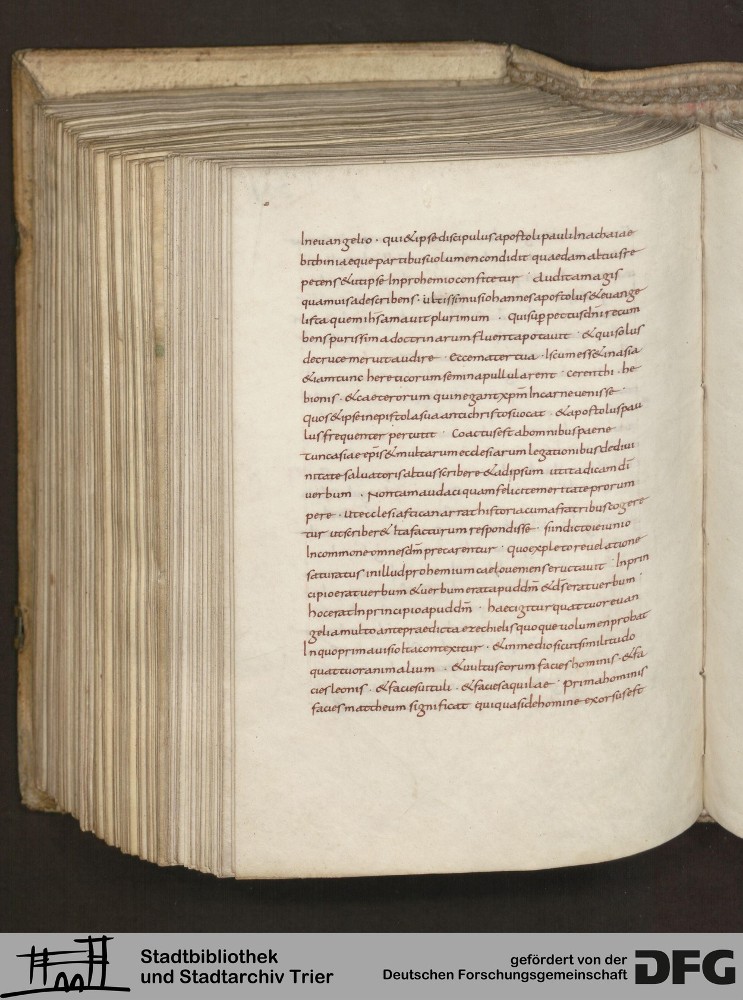 In euangelio · qui & ipse discipulus apostoli pauli In achaiae
bithiniaeque partibus uolumen condidit quaedam altius re
petens & ut ipse In prohemio confitetur · audita magis
quam uisa describens · ultissimus iohannes apostolus & euange
lista quem ihs amauit plurimum · qui sup pectus dni recum
bens purissima doctrinarum fluenta potauit · & qui solus
de cruce meruit audire · ecce mater tua · Is cum ess& in asia
& iam tunc hereticorum semina pullularent · cerenthi · he
bionis · & caeterorum qui negant xpm In carne uenisse ·
quos & ipse in epistola sua antichristos uocat · & apostolus pau
lus frequenter percutit · Coactus est ab omnibus paene
tunc asiae epis & multarum ecclesiarum legationibus de diui
nitate saluatoris altius scribere & ad ipsum ut ita dicam di
uerbum · Non tam audaci quam felici temeritate prorum
pere · ut ecclesiastica narrat historia cum a fratribus cogere
tur ut scriber& Ita facturum respondisse · si indicto ieiunio
In commone omnes dm precarentur · quo expleto reuelatione
saturatus in illud prohemium caelo ueniens eructauit · In prin
cipio erat uerbum & uerbum erat apud dm & ds erat uerbum ·
hoc erat In principio apud dm · haec igitur quattuor euan
gelia multo ante praedicta ezechielis quoque uolumen probat
In quo prima uisio Ita contexitur · & in medio sicut similitudo
quattuor animalium · & uultus eorum facies hominis · & fa
cies leonis · & facies uituli · & facies aquilae · prima hominis
facies mattheum significat qui quasi de homine exorsus est
Stadtbibliothek
und Stadtarchiv Trier
gefördert von der
Deutschen Forschungsgemeinschaft
DFG